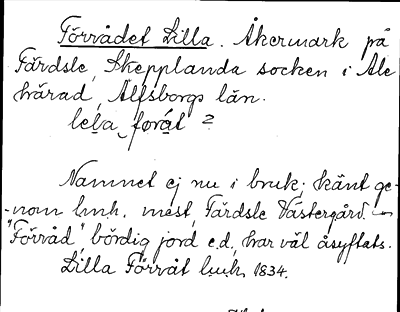 Förrådet Lilla. Åkermark på
Färdsle, Skepplanda socken i Ale
härad, Älfsborgs län.
lela foråt ?
Namnet ej nu i bruk; känt ge-
-nom lmh. mest, Färdsle Västergård. —
"Förråd", bördig jord e.d., har väl åsyftats.
Lilla Förråt lmh. 1834.